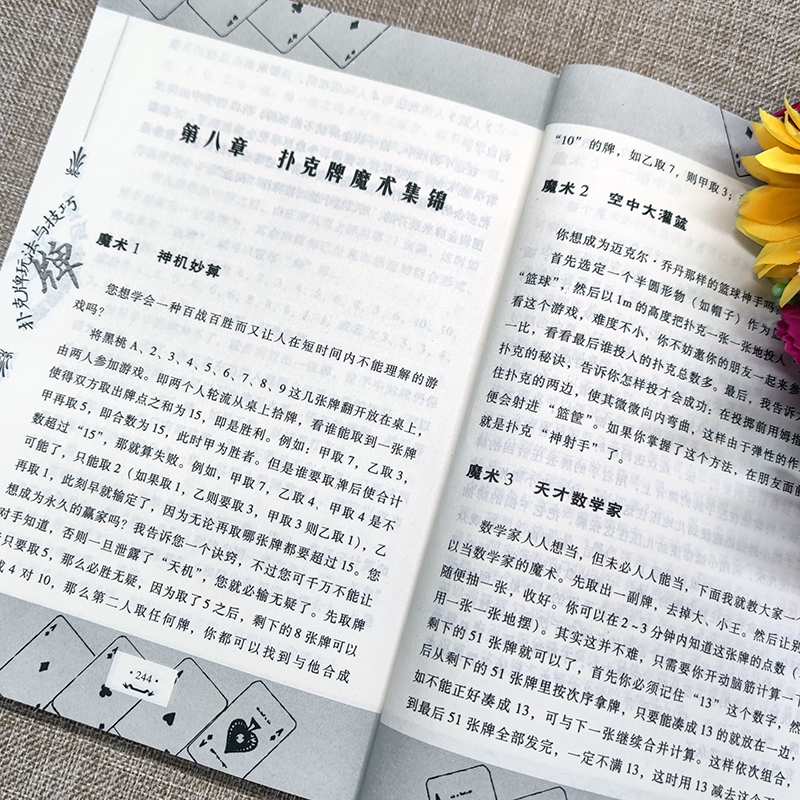 扑克牌玩法与技巧
牌
第八章 扑克牌魔术集锦
魔术1 神机妙算
您想学会一种百战百胜而又让人在短时间内不能理解的游
戏吗？
将黑桃A、2、3、4、5、6、7、8、9这几张牌翻开放在桌上，
由两人参加游戏。即两个人轮流从桌上拾牌，看谁能取到一张牌
使得双方取出牌点之和为15，即是胜利。例如：甲取7，乙取3，
甲再取5，即合数为15，此时甲为胜者。但是谁要取牌后使合计
数超过“15”，那就算失败。例如，甲取7，乙取4，甲取4是不
可能了，只能取2（如果取1，乙则要取3，甲取3则乙取1），乙
再取1，此刻早就输定了，因为无论再取哪张牌都要超过15。您
想成为永久的赢家吗？我告诉您一个诀窍，不过您可千万不能让
对手知道，否则一旦泄露了“天机”，您就必输无疑了。先取牌
只要取5，那么必胜无疑，因为取了5之后，剩下的8张牌可以
4对10，那么第二人取任何牌，你都可以找到与他合成
244
“10”的牌，如乙取7，则甲取3；
魔术2 空中大灌篮
你想成为迈克尔·乔丹那样的篮球神手吗
首先选定一个半圆形物（如帽子）作为
“篮球”，然后以1m的高度把扑克一张一张地投入
看这个游戏，难度不小，你不妨邀你的朋友一起来参
一比，看看最后谁投人的扑克总数多。最后，我告诉
扑克的秘诀，告诉你怎样投才会成功：在投掷前用拇指
住扑克的两边，使其微微向内弯曲，这样由于弹性的作
便会射进“篮筐”。如果你掌握了这个方法，在朋友面前
就是扑克“神射手”了。
魔术3 天才数学家
数学家人人想当，但未必人人能当，下面我就教大家一
以当数学家的魔术。先取出一副牌，去掉大、小王。然后让别
随便抽一张，收好。你可以在2~3分钟内知道这张牌的点数（
用一张一张地摆）。其实这并不难，只需要你开动脑筋计算一下
剩下的51张牌就可以了，首先你必须记住“13”这个数字，然
后从剩下的51张牌里按次序拿牌，只要能凑成13的就放在一边，
如不能正好凑成13，可与下一张继续合并计算。这样依次组合，
到最后51张牌全部发完，一定不满13，这时用13减去这个